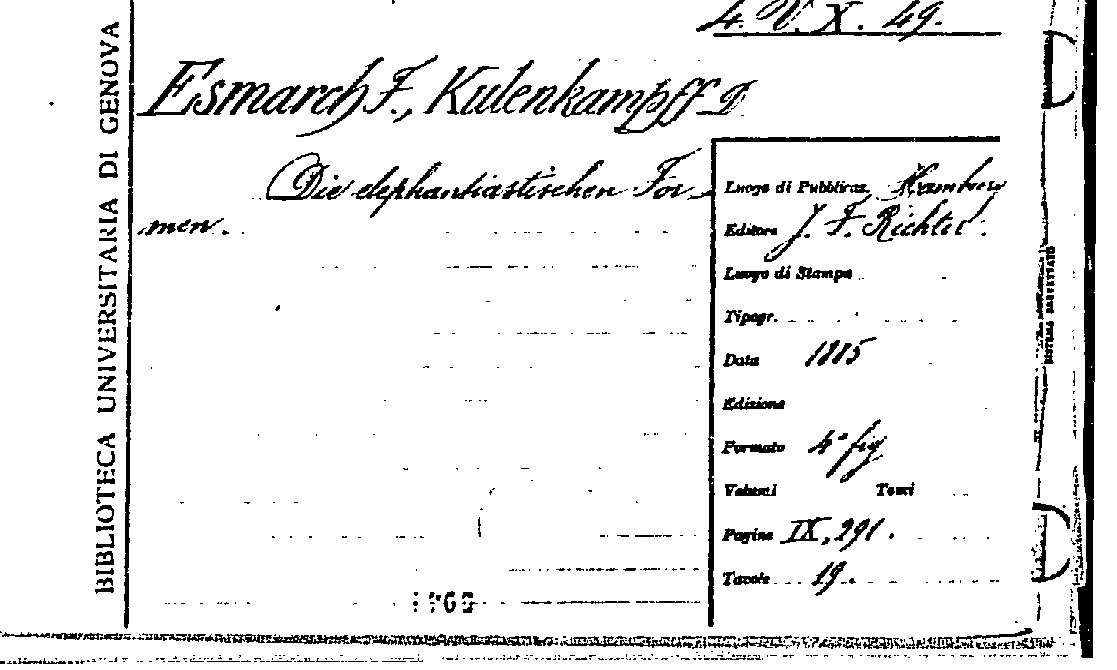 4. V. X. 49.
BIBLIOTECA UNIVERSITARIA DI GENOVA
Esmarch F., Kulenkampff D
Die elephantiastischen For-
men.
Luogo di Pubblicaz. Hamburg
Editore J. F. Richter.
Luogo di Stampa
Tipogr.
Data 1885
Edizione
Formato 4° fig
Volumi Tomi
Pagine IX, 291.
Tavole 19.